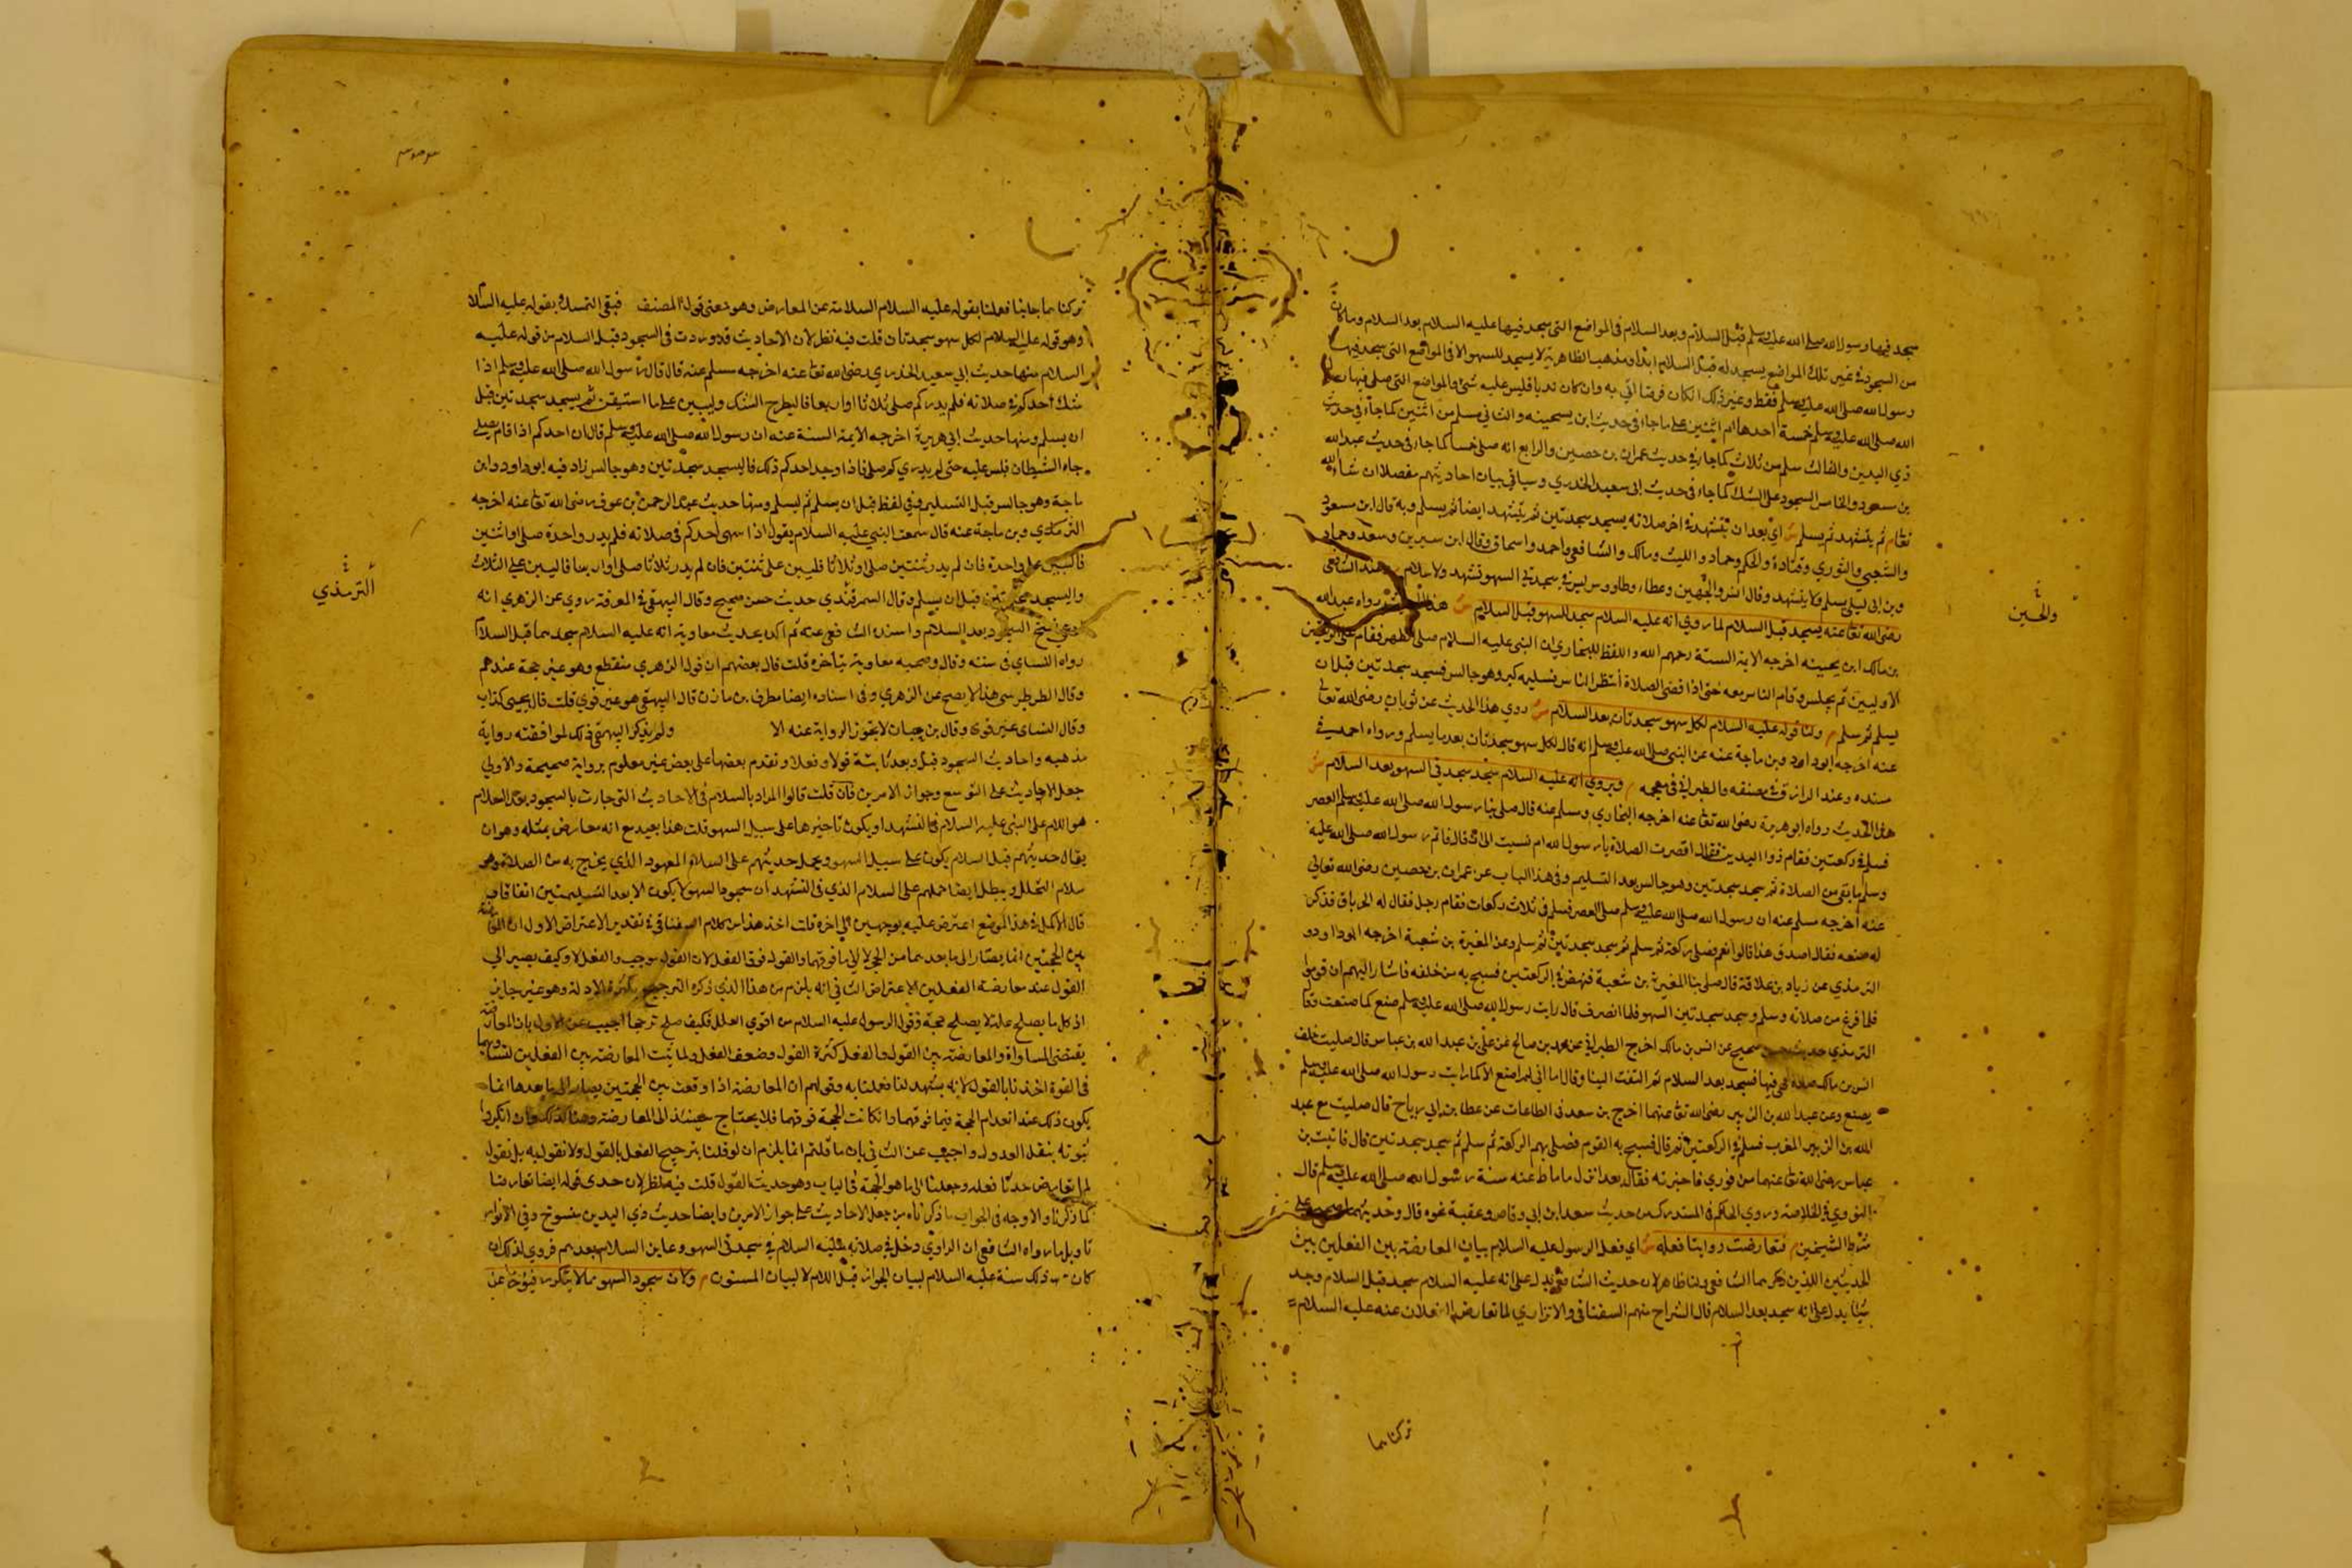 سجد فيها رسول الله صلى الله عليه وسلم قبل السلام وبعد السلام في المواضع التي سجد فيها عليه السلام بعد السلام وما كان
من السجود في غير تلك المواضع يسجد له قبل السلام ابدا ومذهب الظاهرية لا يسجد للسهو الا في المواضع التي سجد فيها
رسول الله صلى الله عليه وسلم فقط وغير ذلك ان كان فرضا اتي به وان كان ندبا فليس عليه شئ والمواضع التي صلى فيها
الله صلى الله عليه وسلم خمسة احدها من اثنتين على ما جاء في حديث ابن بحينة والثاني سلم من اثنتين كما جاء في حديث
ذي اليدين والثالث سلم من ثلاث كما جاء في حديث عمران بن حصين والرابع انه صلى خمسا كما جاء في حديث عبد الله
بن مسعود والخامس السجود على الشك كما جاء في حديث ابي سعيد الخدري وسياتي بيان احاديثهم مفصلا ان شاء الله
تعالى م ثم يتشهد ثم يسلم ش اي بعد ان يتشهد في اخر صلاته يسجد سجدتين ثم يتشهد ايضا ثم يسلم وبه قال ابن مسعود
والشعبي والثوري وقتادة والحكم وحماد والليث ومالك والشافعي واحمد واسحاق وقال ابن سيرين وسعد وحماد
وبن ابي ليلى يسلم ولا يتشهد وقال انس والحسن وعطاء وطاووس ليس في سجدتي السهو تشهد ولا سلام م وعند الشافعي
رضي الله تعالى عنه يسجد قبل السلام لما روي انه عليه السلام سجد للسهو قبل السلام ش هذا الحديث رواه عبد الله
بن مالك ابن بحينة اخرجه الايمة الستة رحمهم الله واللفظ للبخاري ان النبي عليه السلام صلى الظهر فقام في الركعتين
الاوليين لم يجلس وقام الناس معه حتى اذا قضى الصلاة انتظر الناس تسليمه كبر وهو جالس فسجد سجدتين قبل ان
يسلم ثم سلم م ولنا قوله عليه السلام لكل سهو سجدتان بعد السلام ش روي هذا الحديث عن ثوبان رضي الله تعالى
عنه اخرجه ابو داود وبن ماجة عنه عن النبي صلى الله عليه وسلم انه قال لكل سهو سجدتان بعد ما يسلم ورواه احمد في
مسنده وعند الرزاق في مصنفه والطبراني في معجمه م وروي انه عليه السلام سجد سجدتي السهو بعد السلام ش
هذا الحديث رواه ابو هريرة رضي الله تعالى عنه اخرجه البخاري ومسلم عنه قال صلى بنا رسول الله صلى الله عليه وسلم العصر
فسلم في ركعتين فقام ذو اليدين فقال اقصرت الصلاة يا رسول الله ام نسيت الى ان قال فاتم رسول الله صلى الله عليه
وسلم ما بقي من الصلاة ثم سجد سجدتين وهو جالس بعد التسليم وفي هذا الباب عن عمران بن حصين رضي الله تعالى
عنه اخرجه مسلم عنه ان رسول الله صلى الله عليه وسلم صلى العصر فسلم في ثلاث ركعات فقام رجل فقال له الخرباق فذكر
له صنعه فقال اصدق هذا قالوا نعم فصلى ركعة ثم سلم ثم سجد سجدتين ثم سلم وعن المغيرة بن شعبة اخرجه ابو داود و
الترمذي عن زياد بن علاقة قال صلى بنا المغيرة بن شعبة فنهض في الركعتين فسبح به من خلفه فاشار اليهم ان قوموا
فلما فرغ من صلاته وسلم وسجد سجدتين السهو فلما انصرف قال رايت رسول الله صلى الله عليه وسلم صنع كما صنعت وقال
الترمذي حديث حسن صحيح عن انس بن مالك اخرج الطبراني عن محمد بن صالح عن علي بن عبد الله بن عباس قال صليت خلف
انس بن مالك صلاة فيها فسجد بعد السلام ثم التفت الينا وقال اما اني لم اصنع الا كما رايت رسول الله صلى الله عليه وسلم
يصنع وعن عبد الله بن الزبير رضي الله تعالى عنهما اخرج بن سعد في الطبقات عن عطا بن ابي رباح قال صليت مع عبد
الله بن الزبير المغرب فسلم في الركعتين ثم قال فسبح به القوم فصلى بهم الركعة ثم سلم ثم سجد سجدتين قال فاتيت بن
عباس رضي الله تعالى عنهما من فوري فاخبرته فقال بعد انزل ما ماط عنه سنة رسول الله صلى الله عليه وسلم قال
النووي في الخلاصة وروي الحاكم في المستدرك من حديث سعد ابن ابي وقاص وعقبة نحوه قال وحديثهما على
شرط الشيخين م فتعارضت روايتا فعله ش اي فعل الرسول عليه السلام بيان المعارضة بين الفعلين بين
الحديثين اللذين ذكرهما الشافعي ولنا ظاهر لان حديث الشافعي يدل على انه عليه السلام سجد قبل السلام وحد
يثنا يدل على انه سجد بعد السلام قال الشراح منهم السغناقي والاترازي لما تعارض الفعلان عنه عليه السلام
تركناهما
والحسن
تركنا ما جانبا فعلنا بقوله عليه السلام السلامته عن المعارض وهو معنى قول المصنف فبقي التمسك بقوله عليه السلام
وهو قوله عليه السلام لكل سهو سجدتان قلت فيه نظر لان الاحاديث قد وردت في السجود قبل السلام من قوله عليه
السلام منها حديث ابي سعيد الخدري رضي الله تعالى عنه اخرجه مسلم عنه قال قال رسول الله صلى الله عليه وسلم اذا
شك احدكم في صلاته فلم يدر كم صلى ثلاثا او اربعا فاليطرح الشك وليبن على ما استيقن ثم يسجد سجدتين قبل
ان يسلم ومنها حديث ابي هريرة اخرجه الايمة الستة عنه ان رسول الله صلى الله عليه وسلم قال ان احدكم اذا قام يصلي
جاه الشيطان فلبس عليه حتى لم يدري كم صلى فاذا وجد احدكم ذلك فاليسجد سجدتين وهو جالس زاد فيه ابو داود وابن
ماجة وهو جالس قبل التسليم وفي لفظ قبل ان يسلم ثم ليسلم ومنها حديث عبد الرحمن بن عوف رضي الله تعالى عنه اخرجه
الترمذي وبن ماجة عنه قال سمعت النبي عليه السلام يقول اذا سهى احدكم في صلاته فلم يدر واحدة صلى او اثنتين
فاليبن على واحدة فان لم يدر ثنتين صلى او ثلاثا فليبن على ثنتين فان لم يدر ثلاثا صلى او اربعا فاليبن على الثلاث
واليسجد سجدتين قبل ان يسلم وقال السمرقندي حديث حسن صحيح وقال البيهقي في المعرفة روي عن الزهري انه
ادعي نسخ السجود بعد السلام واسنده الشافعي عنه ثم اكده بحديث معاوية انه عليه السلام سجدهما قبل السلام
رواه النساي في سننه وقال وصحبه معاوية متاخرة قلت قال بعضهم ان قول الزهري منقطع وهو غير حجة عندهم
وقال الطرطوسي هذا لا يصح عن الزهري وفي اسناده ايضا مطرف بن مازن قال البيهقي هو غير قوي قلت قال يحيى كذاب
وقال النساي غير قوي وقال بن حبان لا يجوز الرواية عنه الا ولم يذكر البيهقي ذلك لموافقته رواية
مذهبه واحاديث السجود قبل وبعد ثابتة قولا وفعلا وتقدم بعضها على بعض غير معلوم برواية صحيحة والاولى
حمل الاحاديث على التوسع وجواز الامرين فان قلت قالوا المراد بالسلام في الاحاديث التي جاءت بالسجود بعد السلام
هو السلام على النبي عليه السلام في التشهد او يكون تاخيرها على سبيل السهو قلت هذا بعيد مع انه معارض بمثله وهو ان
يقال حديثهم قبل السلام يكون على سبيل السهو ويحمل حديثهم على السلام المعهود الذي يخرج به من الصلاة وهو
سلام التحلل ويبطل ايضا حملهم على السلام الذي في التشهد ان سجود السهو لا يكون الا بعد التسليمتين اتفاقا
قال الاكمل في هذا الموضع اعترض عليه بوجهين الى اخره قلت اخذ هذا من كلام السغناقي في تقدير الاعتراض الاول ان
بين الحجتين انما يصار الى ما بعدهما من الحج لا الى ما فوقهما والقول فوق الفعل لان القول موجب والفعل لا وكيف يصير الى
القول عند معارضة الفعلين الاعتراض الثاني انه يلزم من هذا الذي ذكره الترجيح بكثرة الادلة وهو غير جايز
اذ كل ما يصلح علة لا يصلح مرجحة وقول الرسول عليه السلام من اقوي العلل فكيف صلح ترجحا اجيب عن الاول بان المعارضة
يقتضي المساواة والمعارضة بين القول والفعل كثرة القول وضعف الفعل ولما ثبت المعارضة بين الفعلين لتساويهما
في القوة اخذنا بالقول لانه يشهد لنا فعلنا به وقولهم ان المعارضة اذا وقعت بين الحجتين يصار الى ما بعدها انما
يكون ذلك عند انعدام الحجة فيما فوقهما واذا كانت الحجة فوقهما فلا يحتاج حينئذ الى المعارضة
ثبوته بنقل العدول واجيب عن الثاني بان ما قلتم انما يلزم ان لو قلنا بترجيح الفعل بالقول ولا نقول به بل نقول
لما تعارض حدثا فعله وجعلنا الى ما هو الحجة في الباب وهو حديث القول قلت فيه نظر لان حدي قوله ايضا تعارضا
كما ذكرنا والاوجه في الجواب ما ذكرناه من حمل الاحاديث على جواز الامرين وايضا حديث ذي اليدين منسوخ وفي الانوار
تاويل ما رواه الشافعي ان الراوي دخل في صلاته عليه السلام في سجدتي السهو وعاين السلام بعدهم فروي لذلك ان
كان ذلك سنة عليه السلام لبيان الجواز قبل السلام لا لبيان المسنون م ولان سجود السهو مما لا يتكرر فيؤخر عن
الترمذي